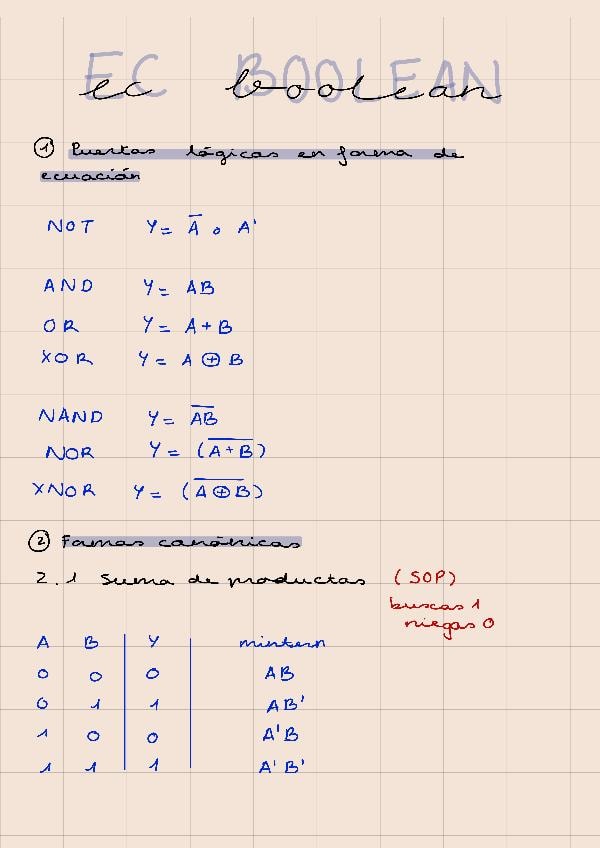 EC BOOLEAN
ec boolean
① Puertas lógicas en forma de
ecuación
NOT Y = A̅ o A'
AND Y = AB
OR Y = A + B
XOR Y = A ⊕ B
NAND Y = A̅B̅
NOR Y = (A̅ ̅+̅ ̅B̅)
XNOR Y = (A̅ ̅⊕̅ ̅B̅)
② Formas canónicas
2.1 Suma de productos (SOP)
buscas 1
niegas 0
A B Y mintern
0 0 0 AB
0 1 1 AB'
1 0 0 A'B
1 1 1 A'B'